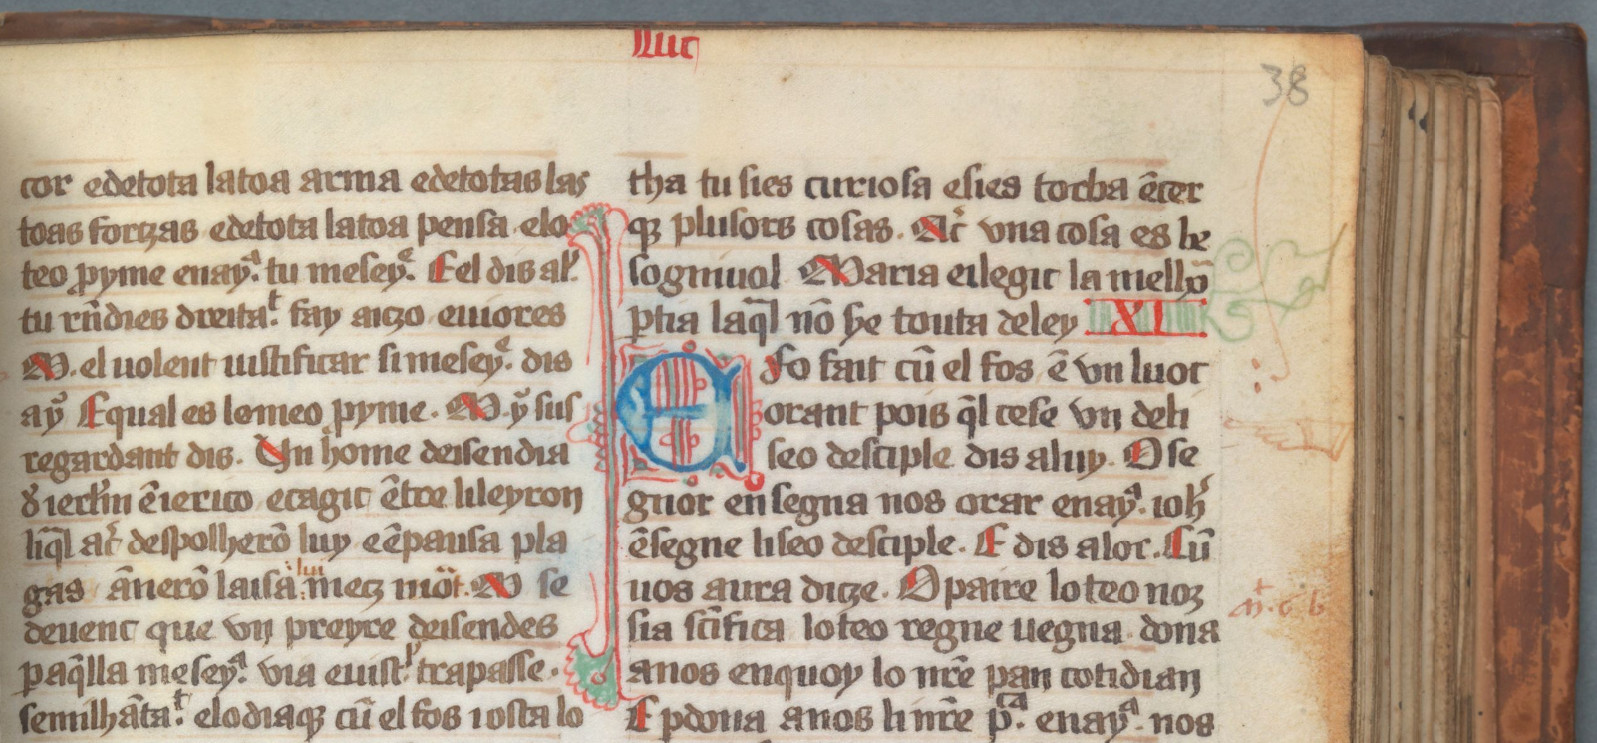 luc
38
cor edetota latoa arma edetotas las
toas forczas edetota latoa pensa elo
teo pyme enayᵃ. tu meseyᵉ. E el dis al
tu rn̄dies dreitaᵗ. fay aiczo euiores
M. el uolent iustificar si meseyᵉ. dis
ay E qual es lo meo pyme. M. y sus
regardant dis. Un home deisendia
d ierlm̄ ē ierico ecagic ētre li leyron
liq̄l ac despolherō luy e ēpausa pla
gas ānerō laisā lui mecz mōt. M se
deuenc que vn preyre deisendes
paq̄lla meseyᵃ. via euist trapasse.
semilhātaᵗ. elo diaq cū el fos iosta lo
tha tu sies curiosa esies torba ēcer
q plusors cosas. Ac vna cosa es be
sognuol Maria eilegic la melhp̄
ptia laq̄l nō s̄e touta deley XI
E fo fait cū el fos ē vn luoc
orant pois q̄l cese vn deli
seo desciple dis aluy. O se
gnor ensegna nos orar enayᵃ. ioh
ēsegne li seo desciple. E dis a lor. Cū
uos aura dicze. O paire lo teo noz
sia sc̄ifica lo teo regne uegna dona
a nos enquoy lo nr̄e pan cotidian
E pdona a nos li nr̄e pᶜᵃ. enayᵃ. nos